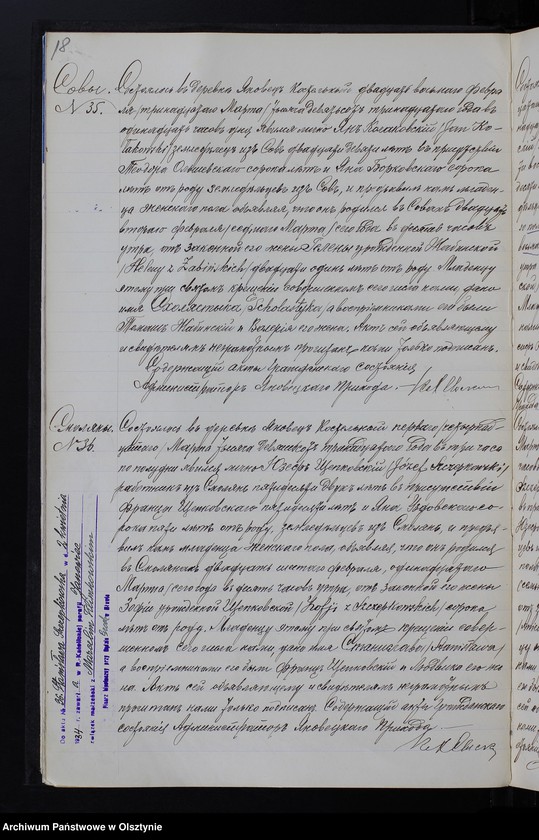 18.
Совы.
N 35.
Состоялось въ деревнѣ Яновецъ Костельный двадцать восьмого февра
ля /тринадцатаго Марта/ тысяча девятьсотъ тринадцатаго года въ
одинадцать часовъ утра. Явился лично Янъ Колаковский /Jan Ko-
łakowski/ земледѣлецъ изъ Совъ двадцати девяти лѣтъ въ присутствіи
Теодора сорока лѣтъ и Яна Борковскаго сорока
лѣтъ отъ роду земледѣльцевъ изъ Совъ, и предъявилъ намъ младен
ца женскаго пола объявляя, что онъ родился въ Совахъ двадцать
второго февраля /седьмого Марта/ сего года въ часовъ
утра, отъ законной его жены Гелены урожденной Жабинской
/Heleny z Żabińskich/ двадцати одинъ лѣтъ отъ роду. Младенцу
этому при святомъ крещеніи совершенномъ сего числа нами, дано
имя Схолястыка /Scholastyka/, а воспріемниками его были
Томашъ Жабинский и Валерія его жена. Актъ сей объявляющему
и свидѣтелямъ неграмотнымъ прочитанъ, нами только подписанъ.
Содержащий акты Гражданскаго состоянія
Администраторъ Яновецкаго Прихода.
Сколяны.
N 36.
Состоялось въ деревнѣ Яновецъ Костельный перваго /четырнад-
цатаго/ Марта тысяча девятьсотъ тринадцатаго года въ три часа
по полудни. Явился лично Юзефъ Щепковский /Józef Szczepkowski/
работникъ изъ Сколянъ пятидесяти двухъ лѣтъ въ присутствіи
Франца Щепковскаго пятидесяти лѣтъ и Яна со-
рока пяти лѣтъ отъ роду, земледѣльцевъ изъ Сколянъ, и предъя-
вилъ намъ младенца женскаго пола, объявляя, что онъ родился
въ Сколянахъ двадцать шестого февраля, /одинадцатаго
Марта/ сего года въ десять часовъ утра, отъ законной его жены
Зофіи урожденной Щепковской /Zofji z Szczepkowskich/ сорока
лѣтъ отъ роду. Младенцу этому при святомъ крещеніи совер-
шенномъ сего числа нами, дано имя Станислава /Stanisława/
а воспріемниками его были Францъ Щепковский и Людвика его же-
на. Актъ сей объявляющему и свидѣтелямъ неграмотнымъ
прочитанъ, нами только подписанъ. Содержащий акты Гражданскаго
состоянія Администраторъ Яновецкаго Прихода.
Do aktu № 36 Stanisława Szczepkowska w d. 2 kwietnia
1934 r. zawarł a w R.-Katolickiej parafji Janowiec
związek małżeński z Marcelim
Archiwum Państwowe w Olsztynie